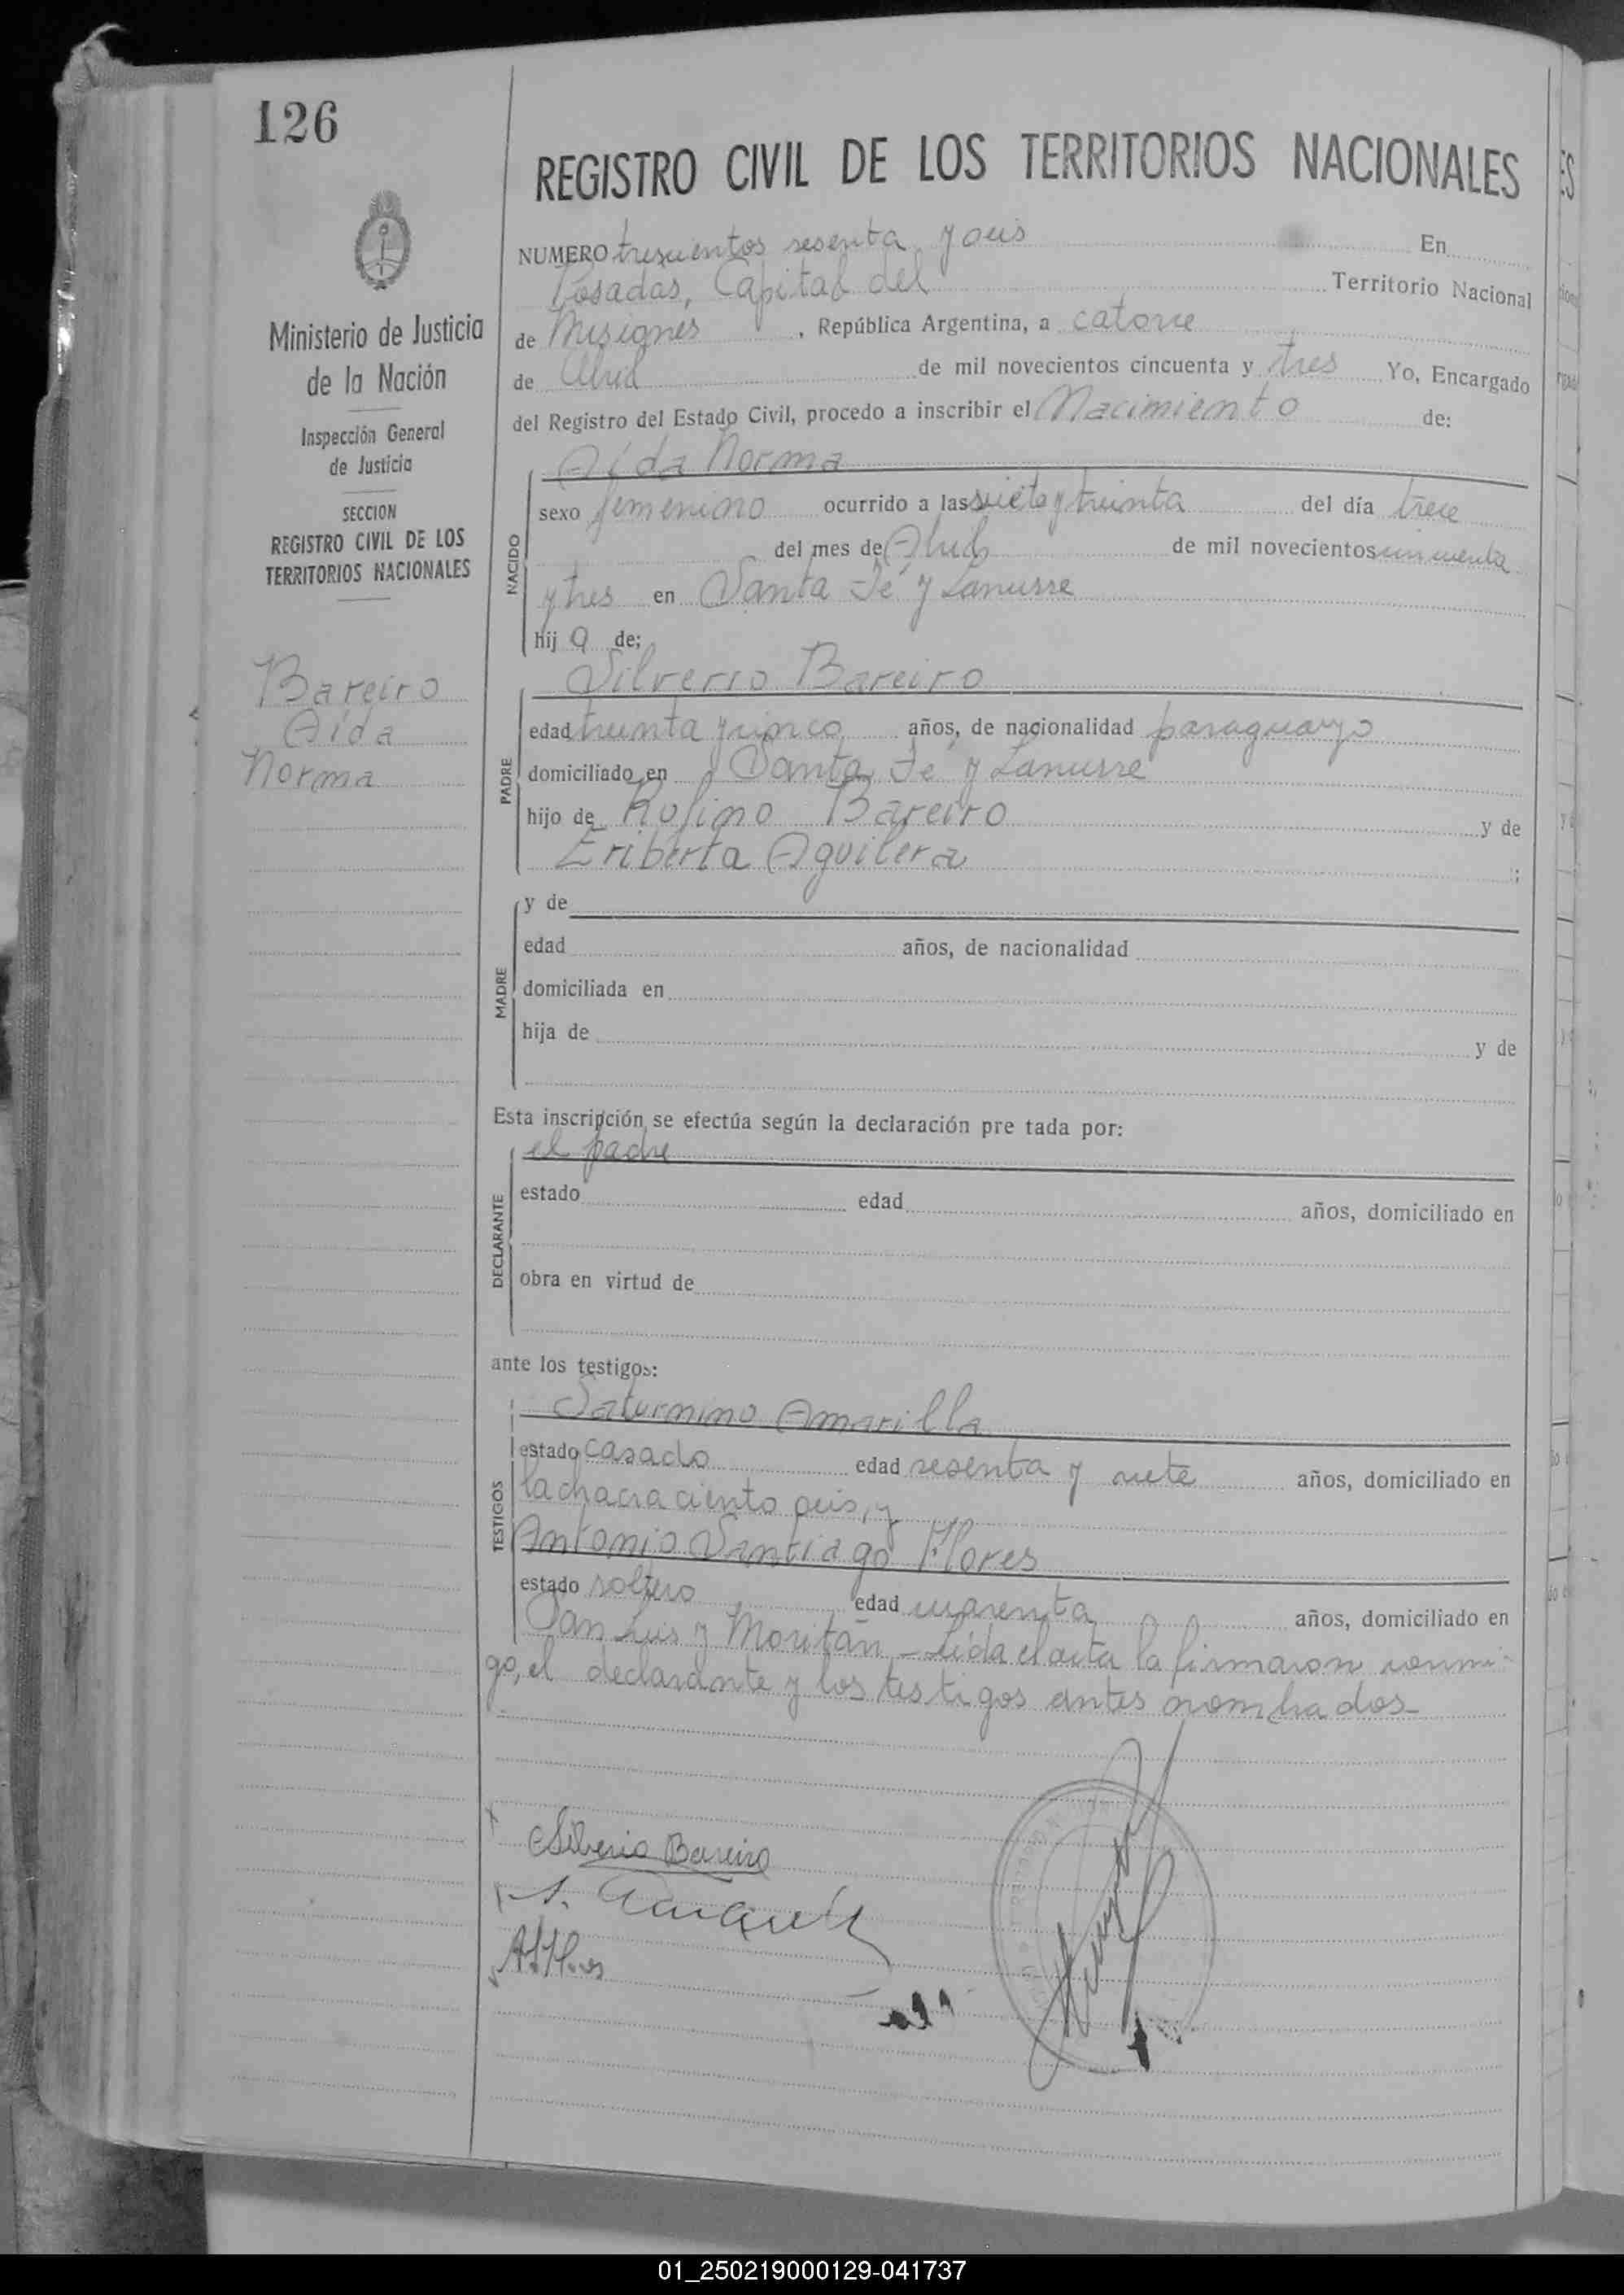 126
REGISTRO CIVIL DE LOS TERRITORIOS NACIONALES
Ministerio de Justicia
de la Nación
Inspección General
de Justicia
SECCION
REGISTRO CIVIL DE LOS
TERRITORIOS NACIONALES
Bareiro
Aída
Norma
NUMERO trescientos sesenta y seis En
Posadas, Capital del Territorio Nacional
de Misiones, República Argentina, a catorce
de Abril de mil novecientos cincuenta y tres Yo, Encargado
del Registro del Estado Civil, procedo a inscribir el Nacimiento de:
NACIDO
Aída Norma
sexo femenino ocurrido a las siete y treinta del día trece
del mes de Abril de mil novecientos cincuenta
y tres en Santa Fé y Lanusse
hij a de:
PADRE
Silverio Bareiro
edad treinta y cinco años, de nacionalidad paraguayo
domiciliado en Santa Fé y Lanusse
hijo de Rufino Bareiro y de
Eriberta Aguilera ;
MADRE
y de
edad años, de nacionalidad
domiciliada en
hija de y de
Esta inscripción se efectúa según la declaración pre tada por:
DECLARANTE
el padre
estado edad años, domiciliado en
obra en virtud de
ante los testigos:
TESTIGOS
Saturnino Amarilla
estado casado edad sesenta y siete años, domiciliado en
la chacra ciento seis, y
Antonio Santiago Flores
estado soltero edad cuarenta años, domiciliado en
San Luis y Moritán - Leída el acta la firmaron conmi-
go, el declarante y los testigos antes nombrados-
Silverio Bareiro
01_250219000129-041737